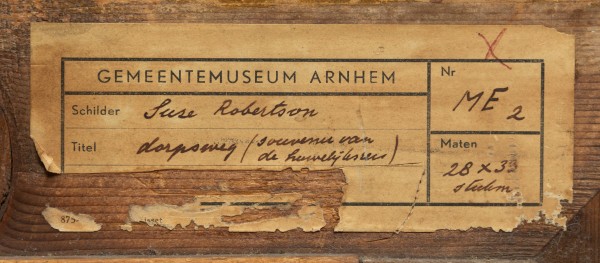 GEMEENTEMUSEUM ARNHEM
Nr
ME 2
Schilder Suse Robertson
Titel dorpsweg (souvenir van
de huwelijksreis)
Maten
28 x 33
875-